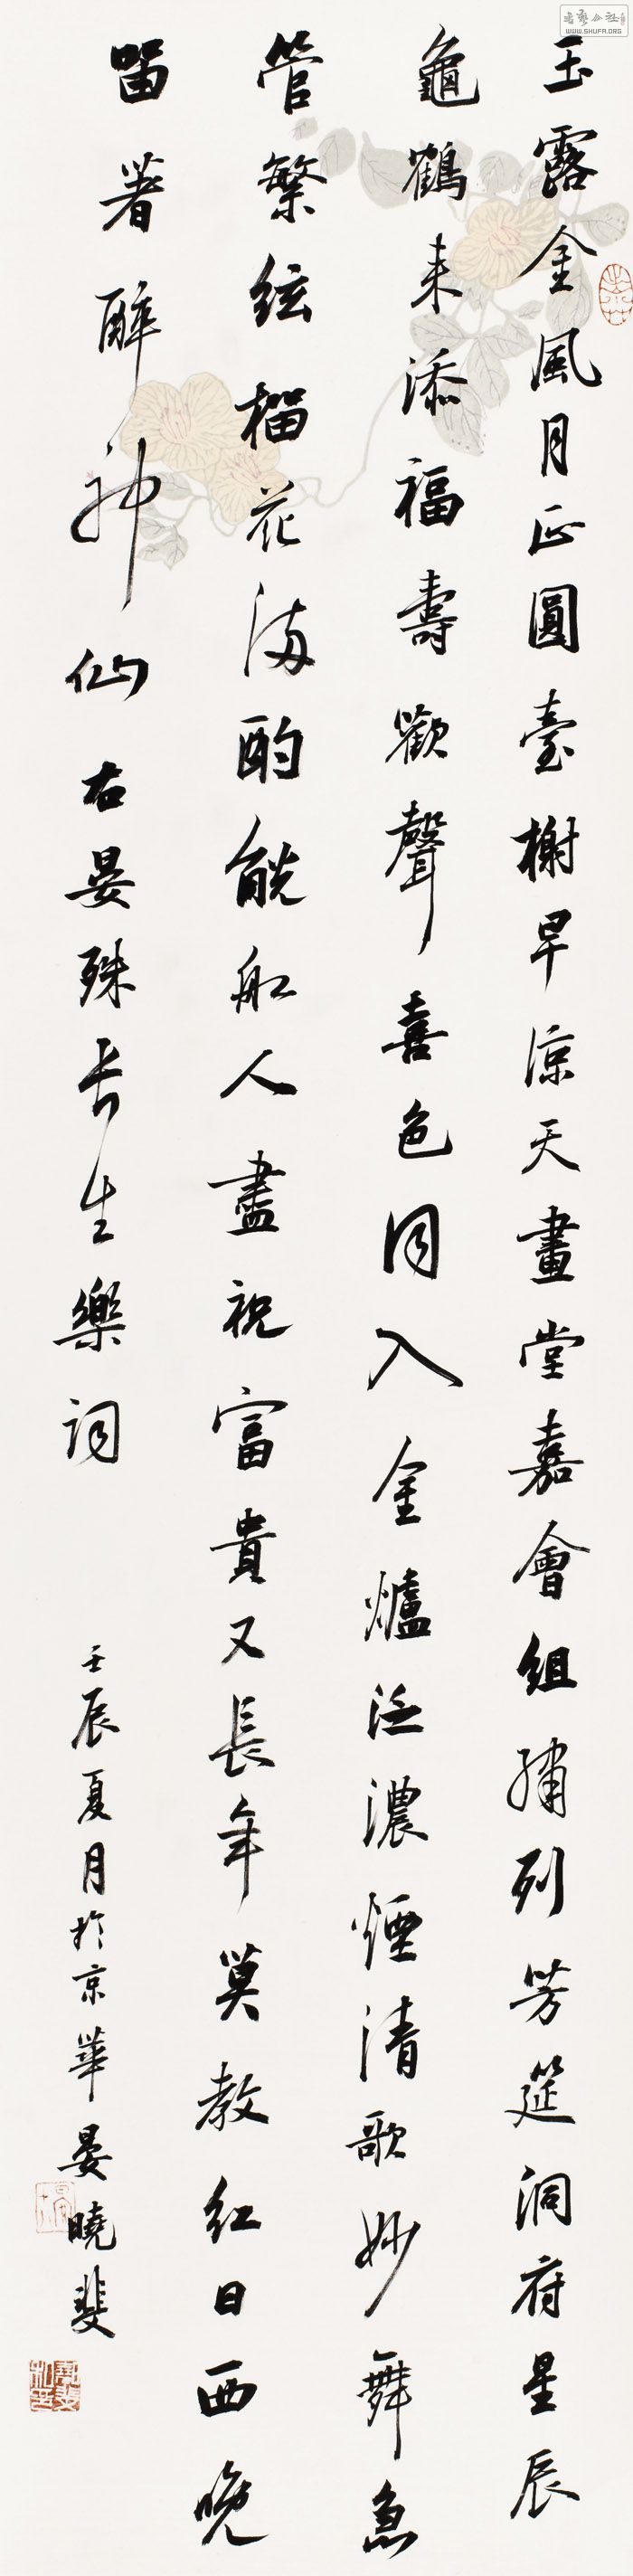 玉露金風月正圓臺榭早涼天畫堂嘉會組繡列芳筵洞府星辰
龜鶴来添福壽歡聲喜色同入金爐泛濃煙清歌妙舞急
管繁絃榴花滿酌觥船人盡祝富貴又長年莫教紅日西晚
留著醉神仙 右晏殊长生樂詞 壬辰夏月於京華晏曉斐
WWW.SHUFA.ORG